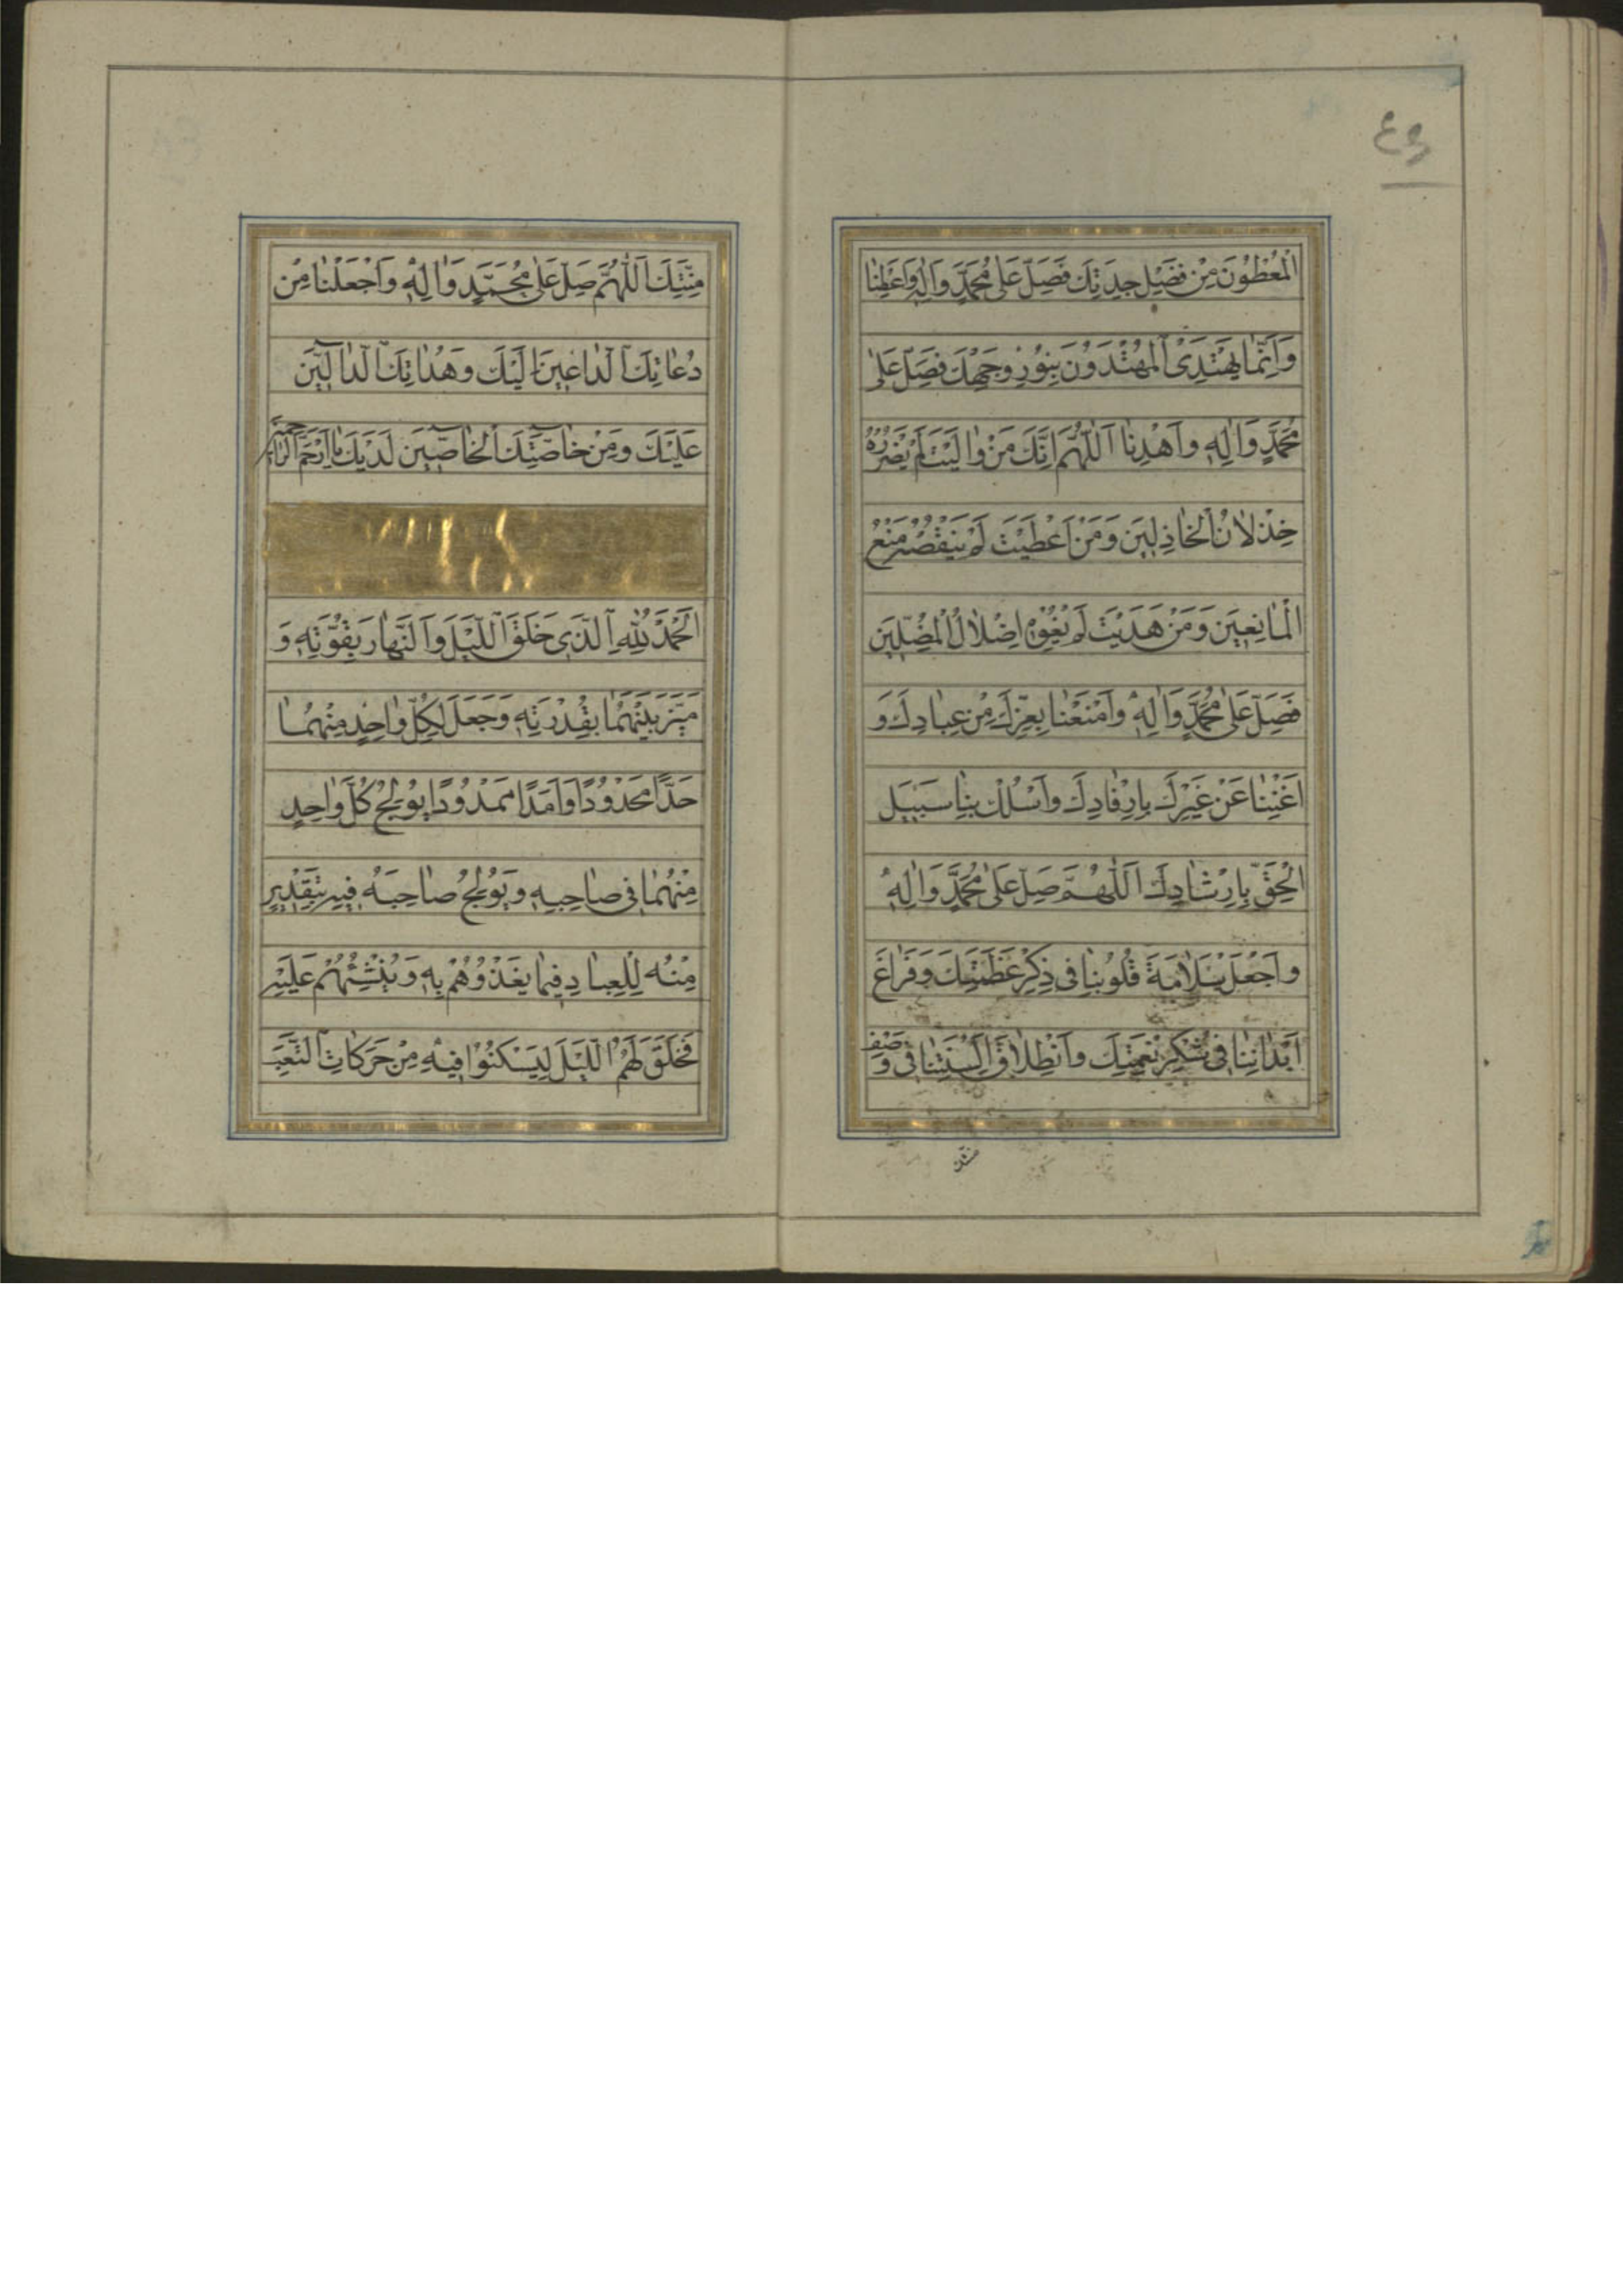 ٤٩
الْمُعْطُونَ مِنْ فَضْلِ جِدَتِكَ فَصَلِّ عَلَى مُحَمَّدٍ وَآلِهِ وَاَعْطِنَا
وَاِنَّمَا يَهْتَدِى الْمُهْتَدُونَ بِنُورِ وَجْهِكَ فَصَلِّ عَلَى
مُحَمَّدٍ وَآلِهِ وَاهْدِنَا اَللّٰهُمَّ اِنَّكَ مَنْ وَالَيْتَ لَمْ يَضْرُرْهُ
خِذْلَانُ الْخَاذِلِينَ وَمَنْ اَعْطَيْتَ لَمْ يَنْقُصْهُ مَنْعُ
الْمَانِعِينَ وَمَنْ هَدَيْتَ لَمْ يُغْوِهِ اِضْلَالُ الْمُضِلِّينَ
فَصَلِّ عَلَى مُحَمَّدٍ وَآلِهِ وَامْنَعْنَا بِعِزِّكَ مِنْ عِبَادِكَ وَ
اَغْنِنَا عَنْ غَيْرِكَ بِاِرْفَادِكَ وَاسْلُكْ بِنَا سَبِيلَ
الْحَقِّ بِاِرْشَادِكَ اَللّٰهُمَّ صَلِّ عَلَى مُحَمَّدٍ وَآلِهِ
وَاجْعَلْ سَلَامَةَ قُلُوبِنَا فِى ذِكْرِ عَظَمَتِكَ وَفَرَاغَ
اَبْدَانِنَا فِى شُكْرِ نِعْمَتِكَ وَانْطِلَاقَ اَلْسِنَتِنَا فِى وَصْفِ
مِنَّتِكَ
مِنَّتِكَ اَللّٰهُمَّ صَلِّ عَلَى مُحَمَّدٍ وَآلِهِ وَاجْعَلْنَا مِنْ
دُعَاتِكَ الدَّاعِينَ اِلَيْكَ وَهُدَاتِكَ الدَّالِّينَ
عَلَيْكَ وَمِنْ خَاصَّتِكَ الْخَاصِّينَ لَدَيْكَ يَا اَرْحَمَ الرَّاحِمِينَ
اَلْحَمْدُ لِلّٰهِ الَّذِى خَلَقَ اللَّيْلَ وَالنَّهَارَ بِقُوَّتِهِ وَ
مَيَّزَ بَيْنَهُمَا بِقُدْرَتِهِ وَجَعَلَ لِكُلِّ وَاحِدٍ مِنْهُمَا
حَدًّا مَحْدُودًا وَاَمَدًا مَمْدُودًا يُولِجُ كُلَّ وَاحِدٍ
مِنْهُمَا فِى صَاحِبِهِ وَيُولِجُ صَاحِبَهُ فِيهِ بِتَقْدِيرٍ
مِنْهُ لِلْعِبَادِ فِيمَا يَغْذُوهُمْ بِهِ وَيُنْشِئُهُمْ عَلَيْهِ
فَخَلَقَ لَهُمُ اللَّيْلَ لِيَسْكُنُوا فِيهِ مِنْ حَرَكَاتِ التَّعَبِ